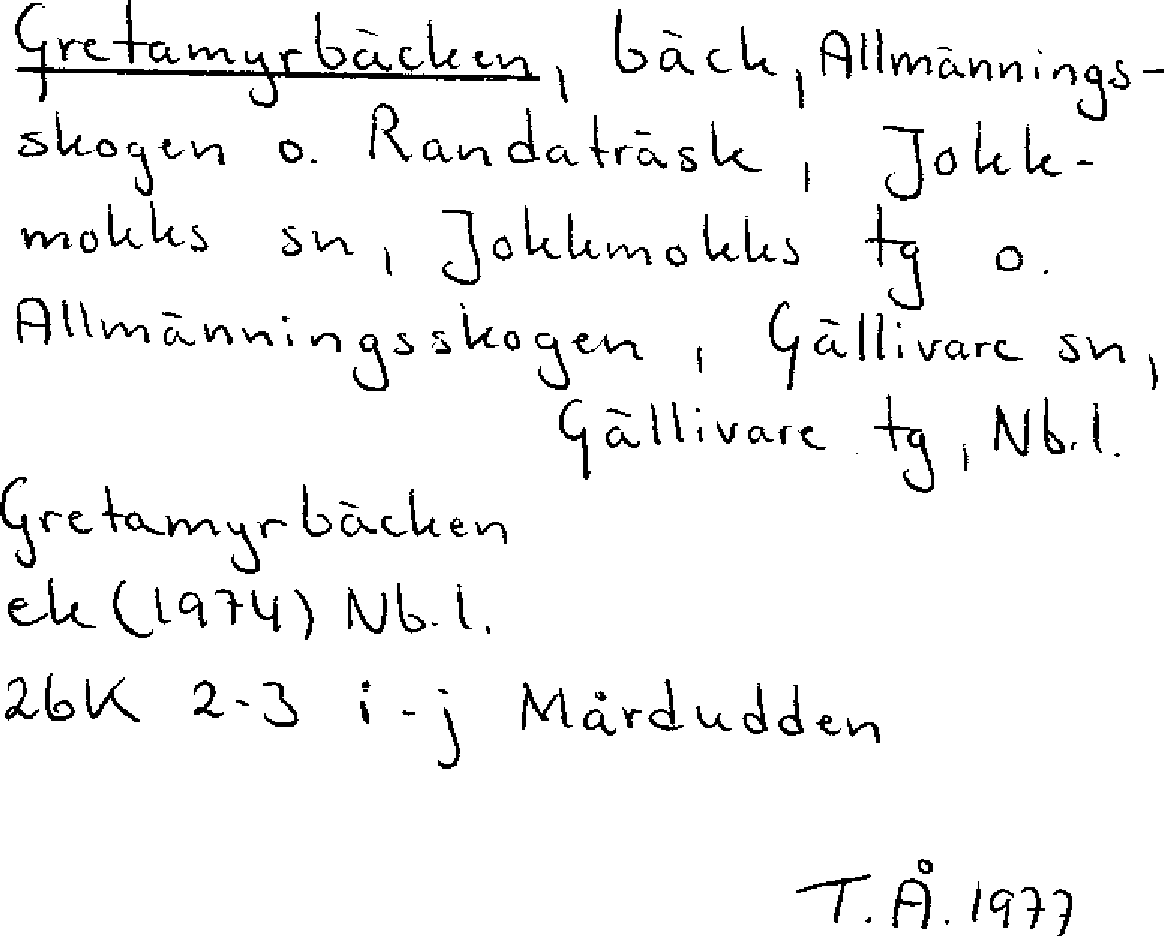 Gretamyrbäcken, bäck, Allmännings-
skogen o. Randaträsk, Jokk-
mokks sn, Jokkmokks tg o.
Allmänningsskogen, Gällivare sn,
Gällivare tg, Nb.l.
Gretamyrbäcken
ek (1974) Nb.l.
26K 2-3 i-j Mårdudden
T.Å. 1977